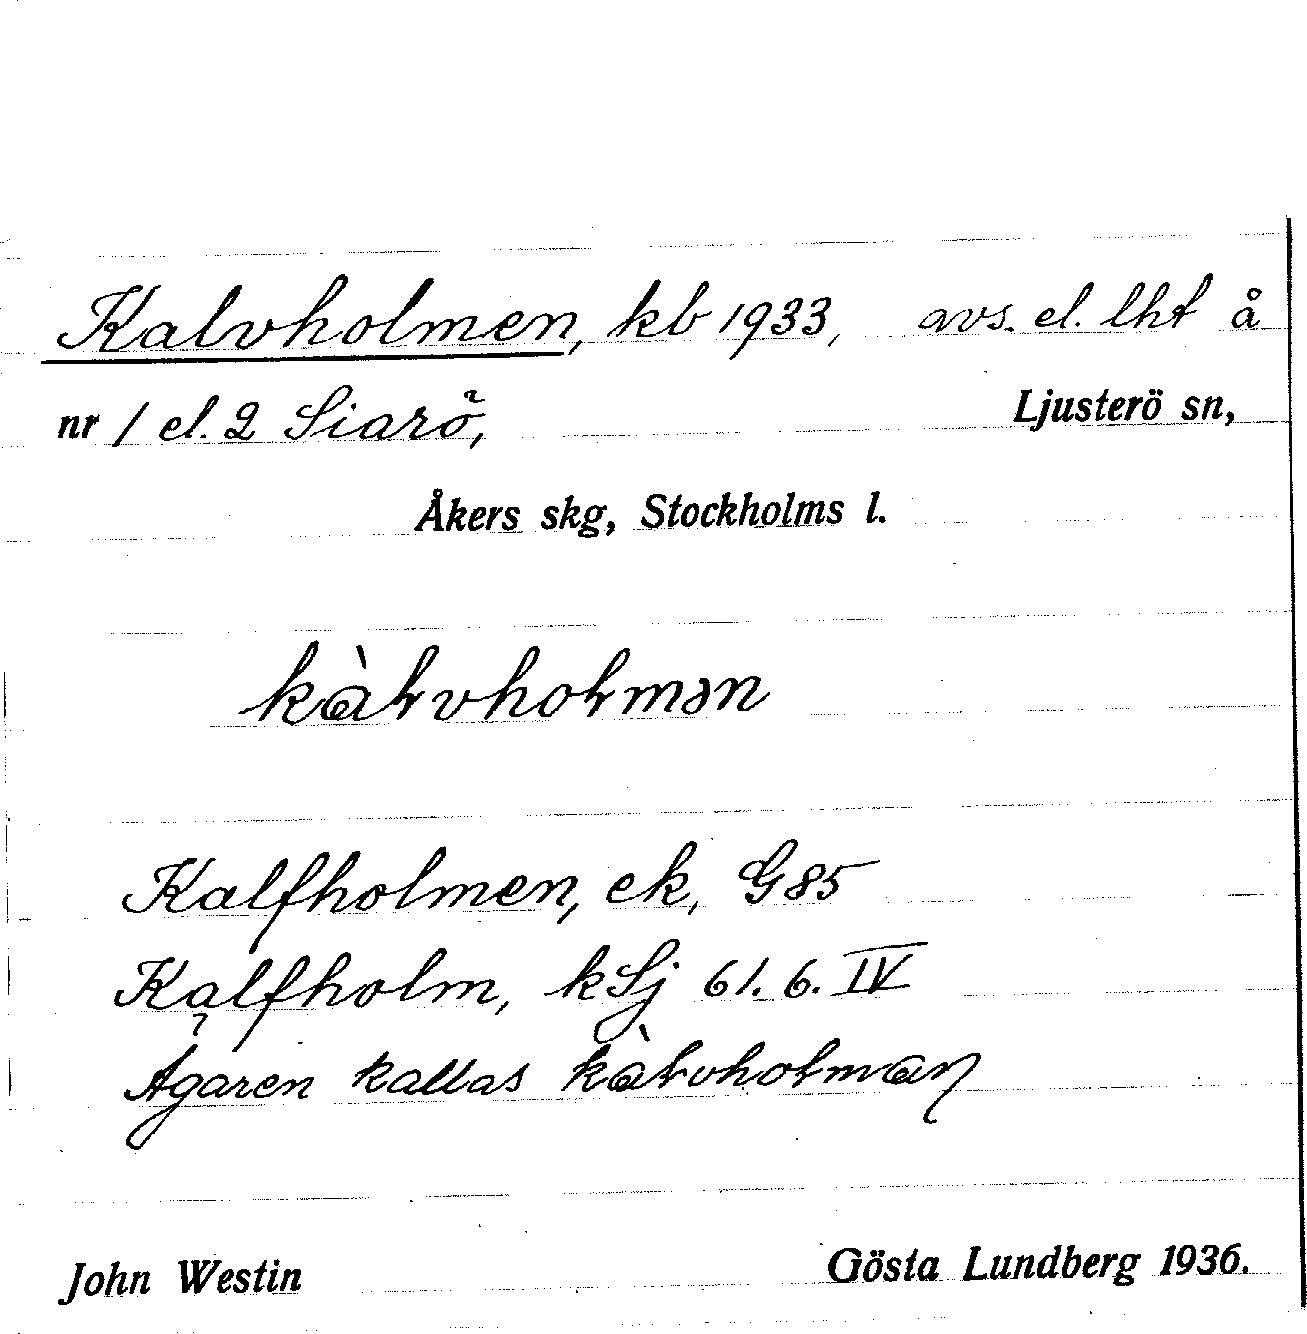 Kalvholmen, kb 1933, avs. el. lht å
nr 1 el. 2 Siarö, Ljusterö sn,
Åkers skg, Stockholms l.
kàlvholmən
Kalfholmen, ek, G85
Kalfholm, kLj 61. 6. IV
Ägaren kallas kàlvholman
John Westin Gösta Lundberg 1936.